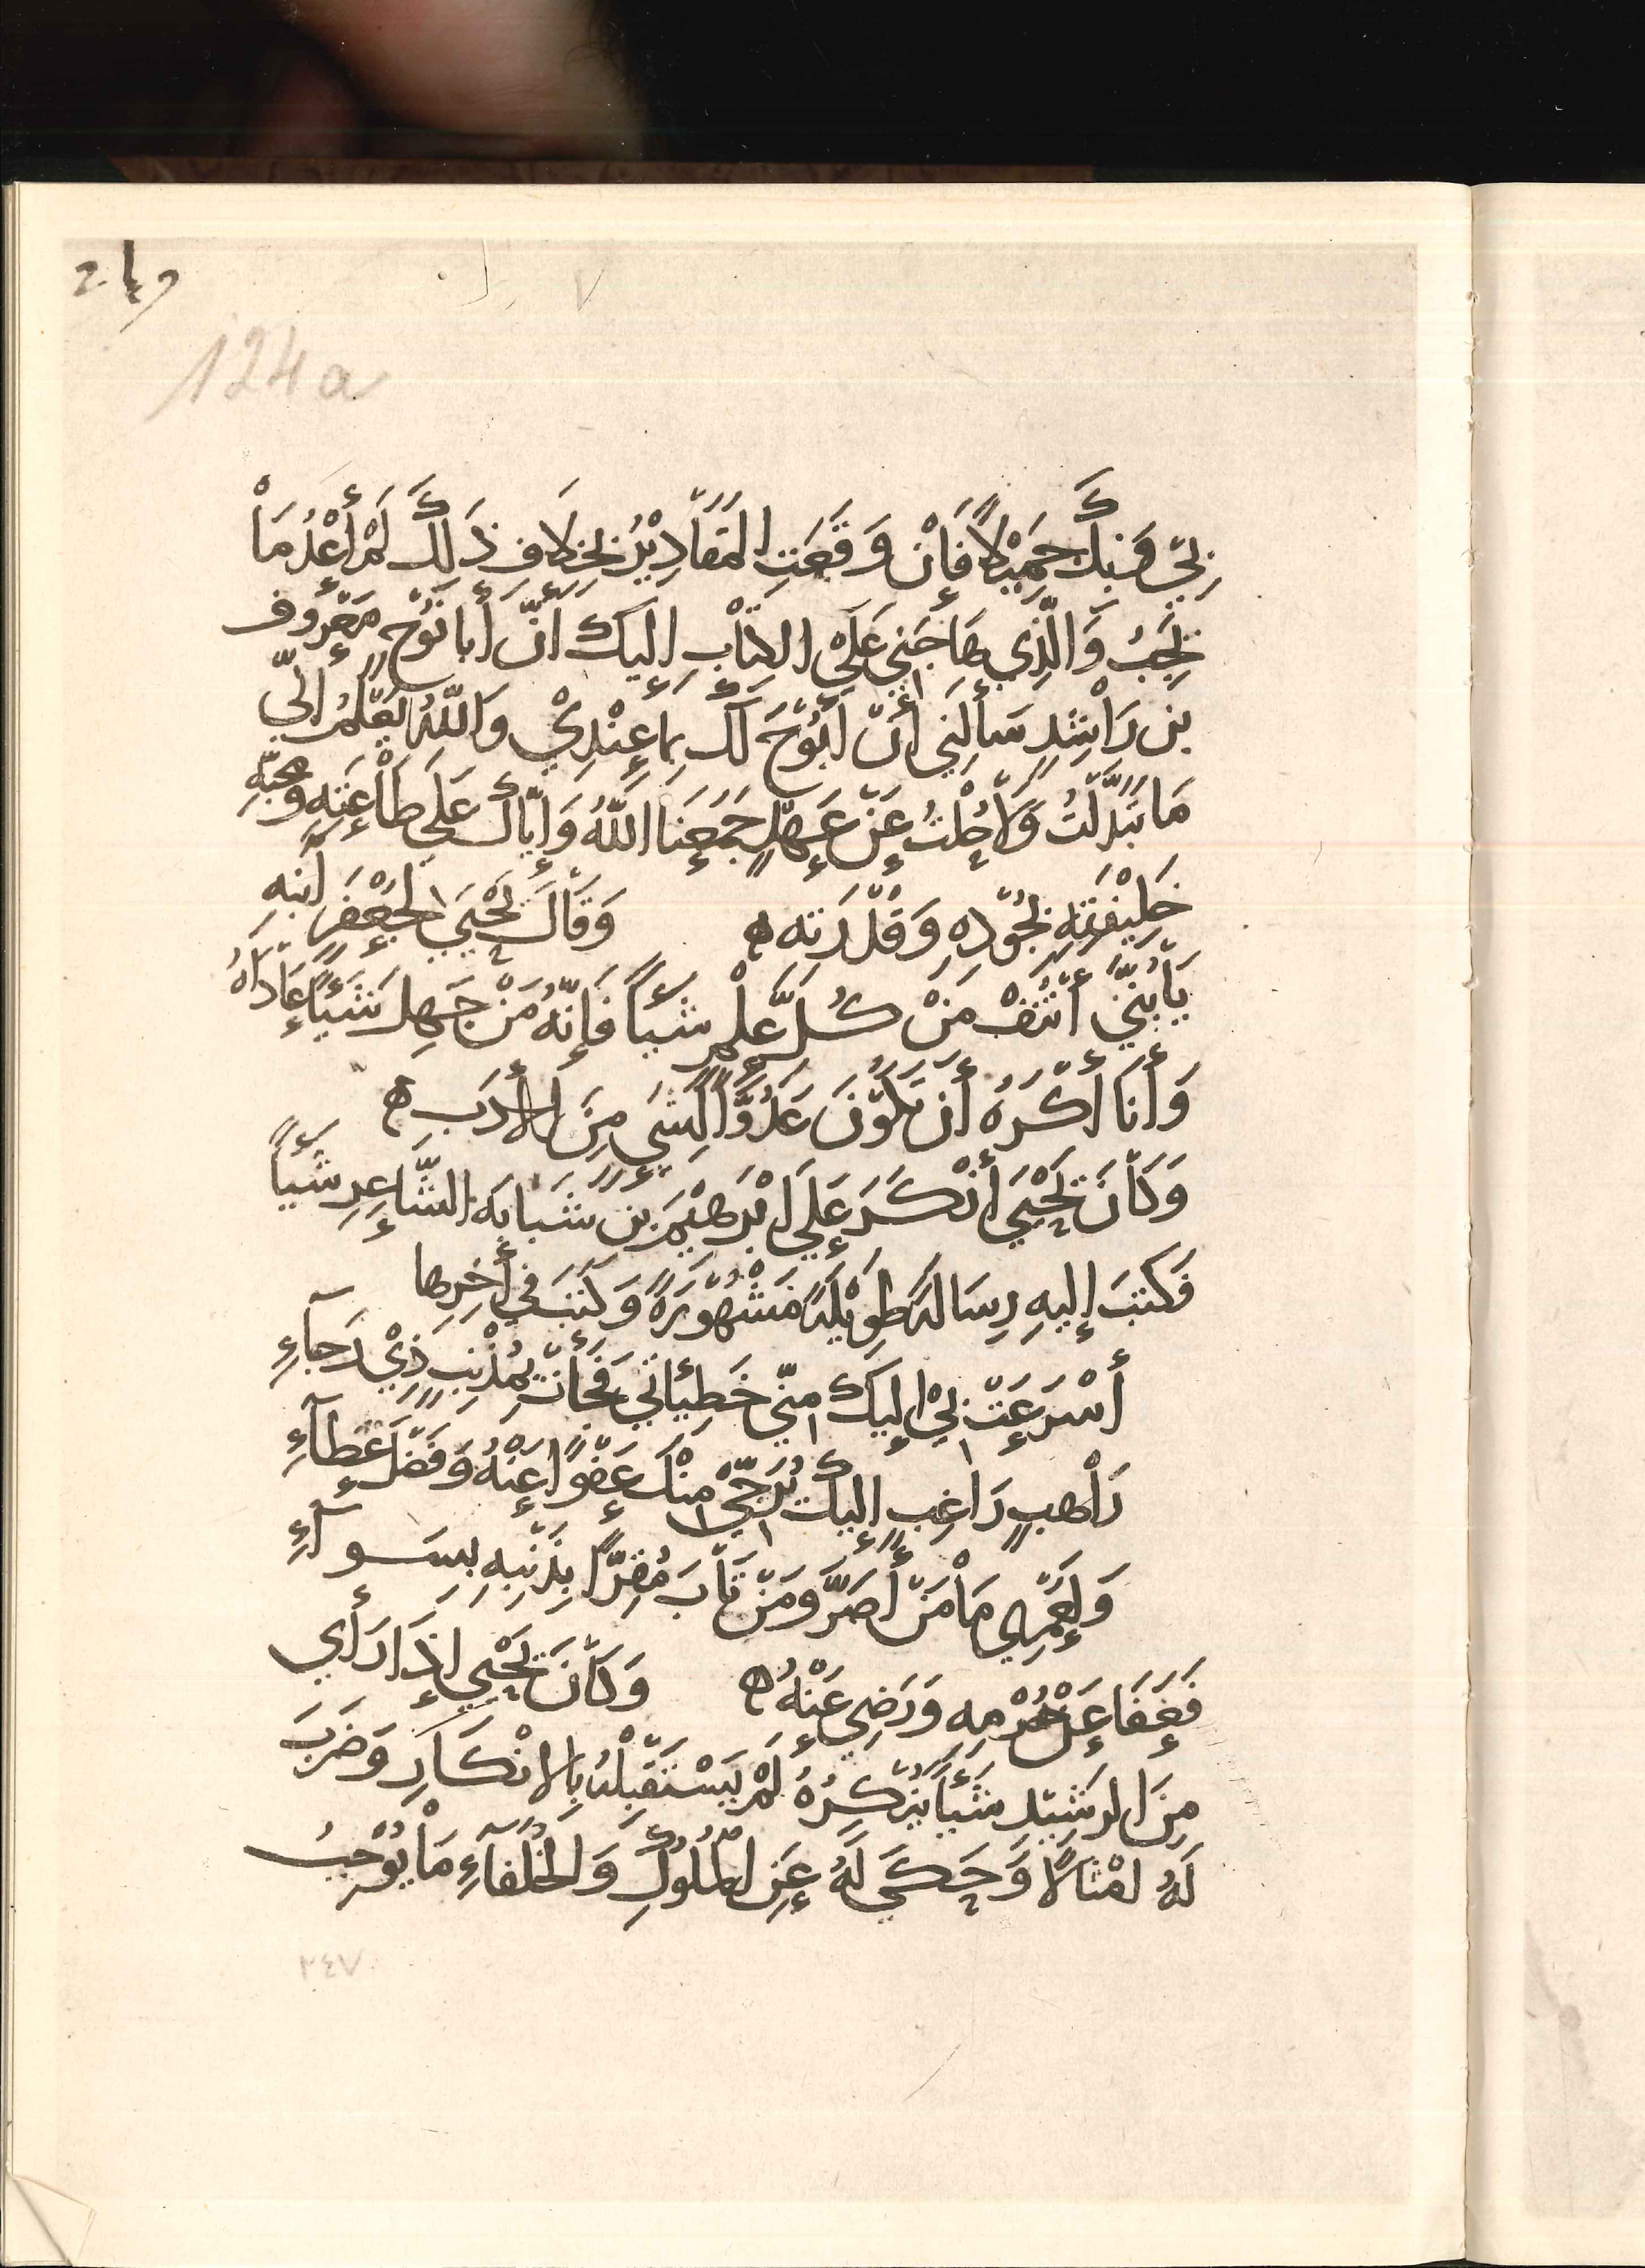 249
124a
بِيْ وَبِكَ جَمِيْلًا فَإِنْ وَقَعَتِ الْمَقَادِيْرُ بِخِلَافِ ذَلِكَ لَمْ أَعْدُ مَاْ
يَجِبُ وَالَّذِي هَاجَنِي عَلَى الكِتَابِ إِلَيكَ أَنَّ أَبَا نُوْحٍ مَعْرُوف
بن رَاْشِدٍ سَأَلَنِي أَنْ أَبُوْحَ لَكَ بِمَا عِنْدِيْ وَاللّهُ يَعْلَمُ إِنِّي
مَا تَبَدَّلْتُ وَلَاْ حُلْتُ عَنْ عَهْدٍ جَمَعَنَا اللَّهُ وَإِيَّاكَ عَلَى طَاْعَتِهِ وَمحبَّةِ
خَلِيْفَتِهِ بِجُوْدِهِ وَقُدْرَتِهِ ه وَقَاْلَ يَحْيَى لِجَعْفَرَ ابْنِهِ
يَاْبُنَيَّ أَنْتُفْ مَنْ كُلِّ عِلْمٍ شَيْأً فَإِنَّهُ مَنْ جَهِلَ شَيْأً عَاْدَاهُ
وَأَنَا أَكْرَهُ أَنْ تَكُوْنَ عَدُوًّا لِشَيءٍ مِنَ الأَدَبِ ه
وَكَاْنَ يَحْيَى أَنْكَرَ عَلَى ابْرَهِيْمَ بن شَبَابَةَ الشَّاعِرِ شَيْأً
فَكَتَبَ إِلَيهِ رِسَالَةً طَوِيْلَةً مَشْهُوْرَةً وَكَتَبَ في أَخِرِهَا
أَسْرَعَتْ بِيْ إِلَيكَ مِنِّي خَطِئَاتي فَجَأْتْ بِمُذْنِبٍ ذِيْ رَجَآءِ
رَاْهِبٍ رَاغِبٍ إِلَيكَ يُرَجِّيْ مِنْكَ عَفْوًا عَنْهُ وَفَضْلَ عَطَآءِ
وَلَعَمْرِي مَاْ مَنْ أَصَرَّ وَمَنْ تَاْبَ مُقِرًّا بِذَنْبِهِ بِسَوآءِ
فَعَفَا عَنْ جُرْمِهِ وَرَضِيَ عَنْهُ ه وَكَاْنَ يَحْيَى إِذَا رَأَى
مِنَ الرَشِيْدِ شَيْأً يُنْكِرُهُ لَمْ يَسْتَقْبِلْهُ بِالاِنْكَارِ وَضَرَبَ
لَهُ امْثَالًا وَحَكَى لَهُ عَنِ الْمُلُوْكِ وَالْخُلَفَآءِ مَاْ يُوْجِبُ
٢٤٧